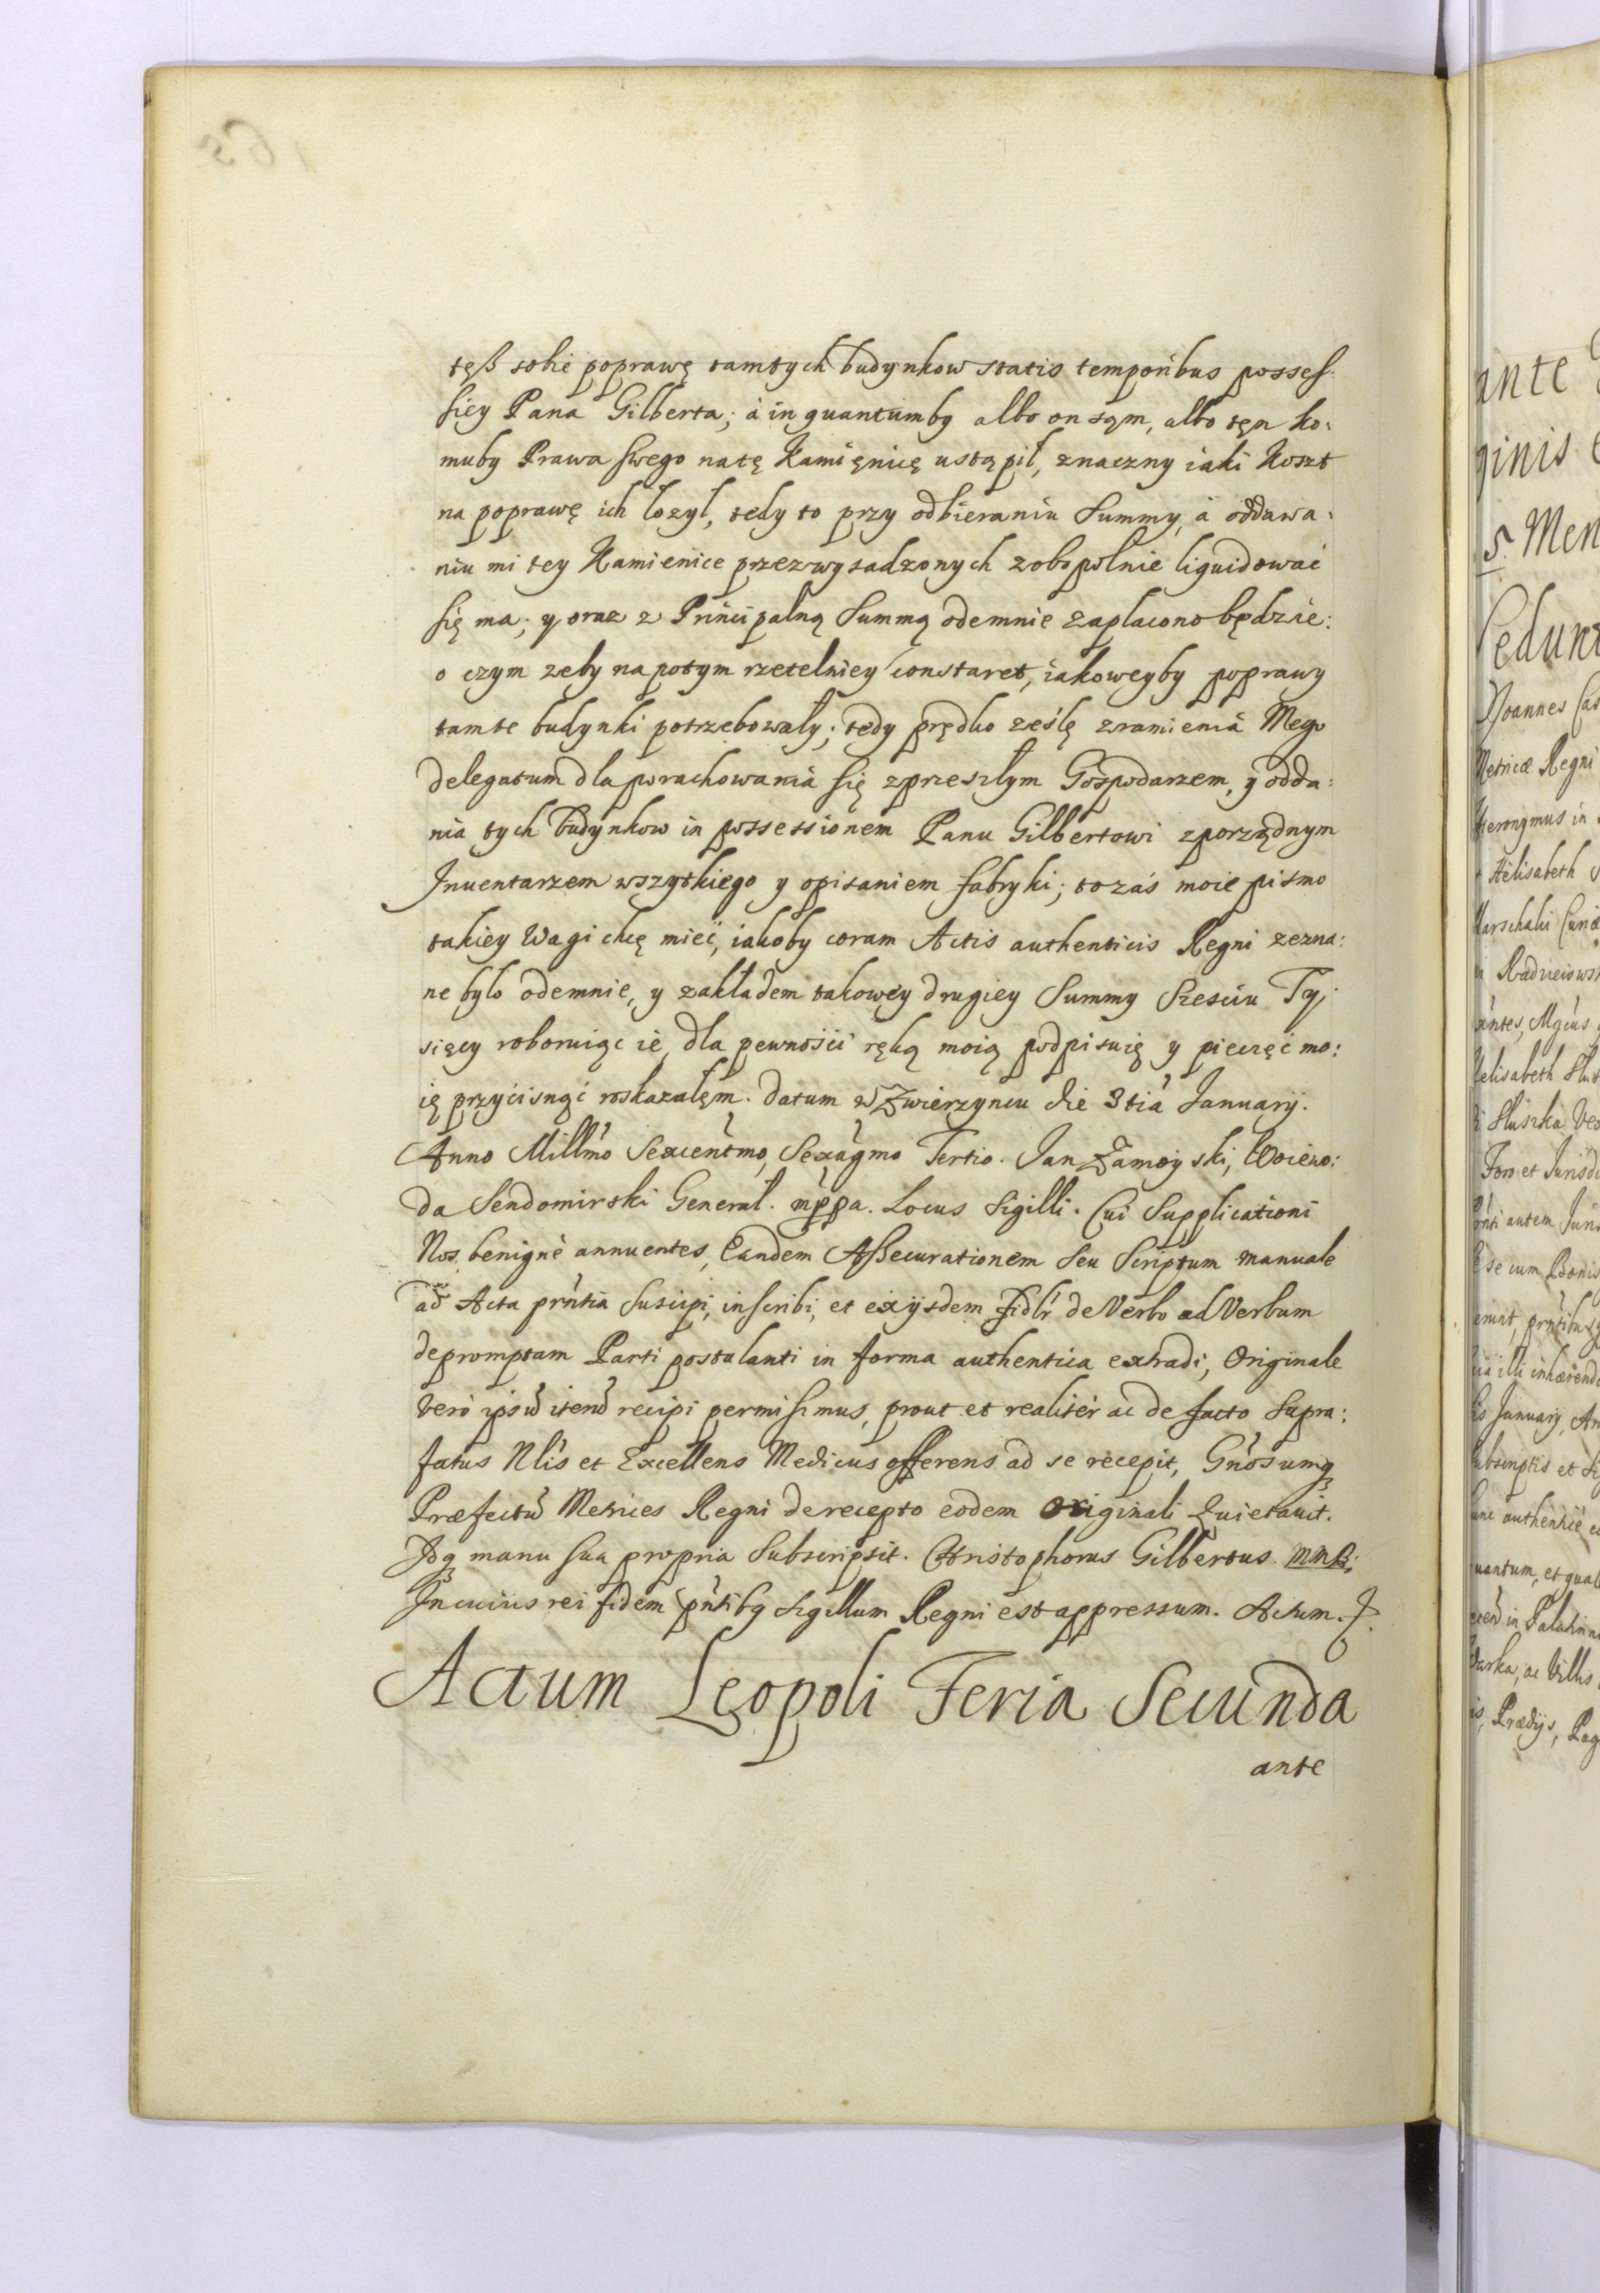 tęß sobie poprawę tamtych budynkow statis temporibus possef
siey Pana Gilberta; à in quantumby albo on sąm, albo tęn ko:
muby Prawa swego natę Kamięnicę ustąpił, znaczny iaki Koszt
na poprawę ich lozyl, tedy to przy odbieraniu Summy, à oddawa:
niu mi tey Kamienice przez wysadzonych zobopolnie liquidowac
się ma; y oraz z Principalną Summą odemnie zaplacono będzie:
o czym zeby na potym rzetelniey constaret, iakoweyby poprawy
tamte budynki potrzebowały; tedy prędko ześlę zramienia Mego
delegatum dla porachowania się zprzeszlym Gospodarzem, y odda:
nia tych budynkow in possessionem Panu Gilbertowi zporządnym
Inuentarzem wszytkiego y opisaniem fabryki; to zaś moie pismo
takiey Wagi chcę mieć, iakoby coram Actis authenticis Regni zezna:
ne było odemnie, y zakładem takowey drugiey Summy Szesciu Ty:
sięcy roboruiąc ie, dla pewności ręką moią podpisuię y pieczęć mo:
ię przycisnąć roskazałęm. Datum w Zwierzyncu die 3tia January.
Anno Millmo Sexcentmo, Sexagmo Tertio. Jan Zamoyski, Woiewo:
da Sendomirski General. mppa. Locus Sigilli. Cui Supplicationi
Nos benignè annuentes, Eandem Assecurationem seu Scriptum manuale
ad Acta prntia suscipi, inscribi, et exijsdem fidlr de Verbo ad Verbum
depromptam Parti postulanti in forma authentica extradi, Originale
verò ipsu itend recipi permisimus, prout et realiter ac de facto supra:
fatus Nlis et Excellens Medicus offerens ad se recepit, Gnosumq
Præfectu Metrices Regni de recepto eodem Originali Quietauit.
Idq manu sua propria subscripsit. Christophorus Gilbertus mmp:
In cuius rei fidem pntibq Sigillum Regni est appressum. Actum.
Actum Leopoli Feria Secunda
ante
ante
ginis
5. Men
Joannes Cas
Metricæ Regni
Hieronymus in
Helisabeth
Marschalci Curiæ
Radzieiows
Foro et Jurisd
autem Juri
se cum Bonis
illi inhærend
January, An
subscriptis et si
authenticè
in Palatina
ac Villis
Prædijs, Pag